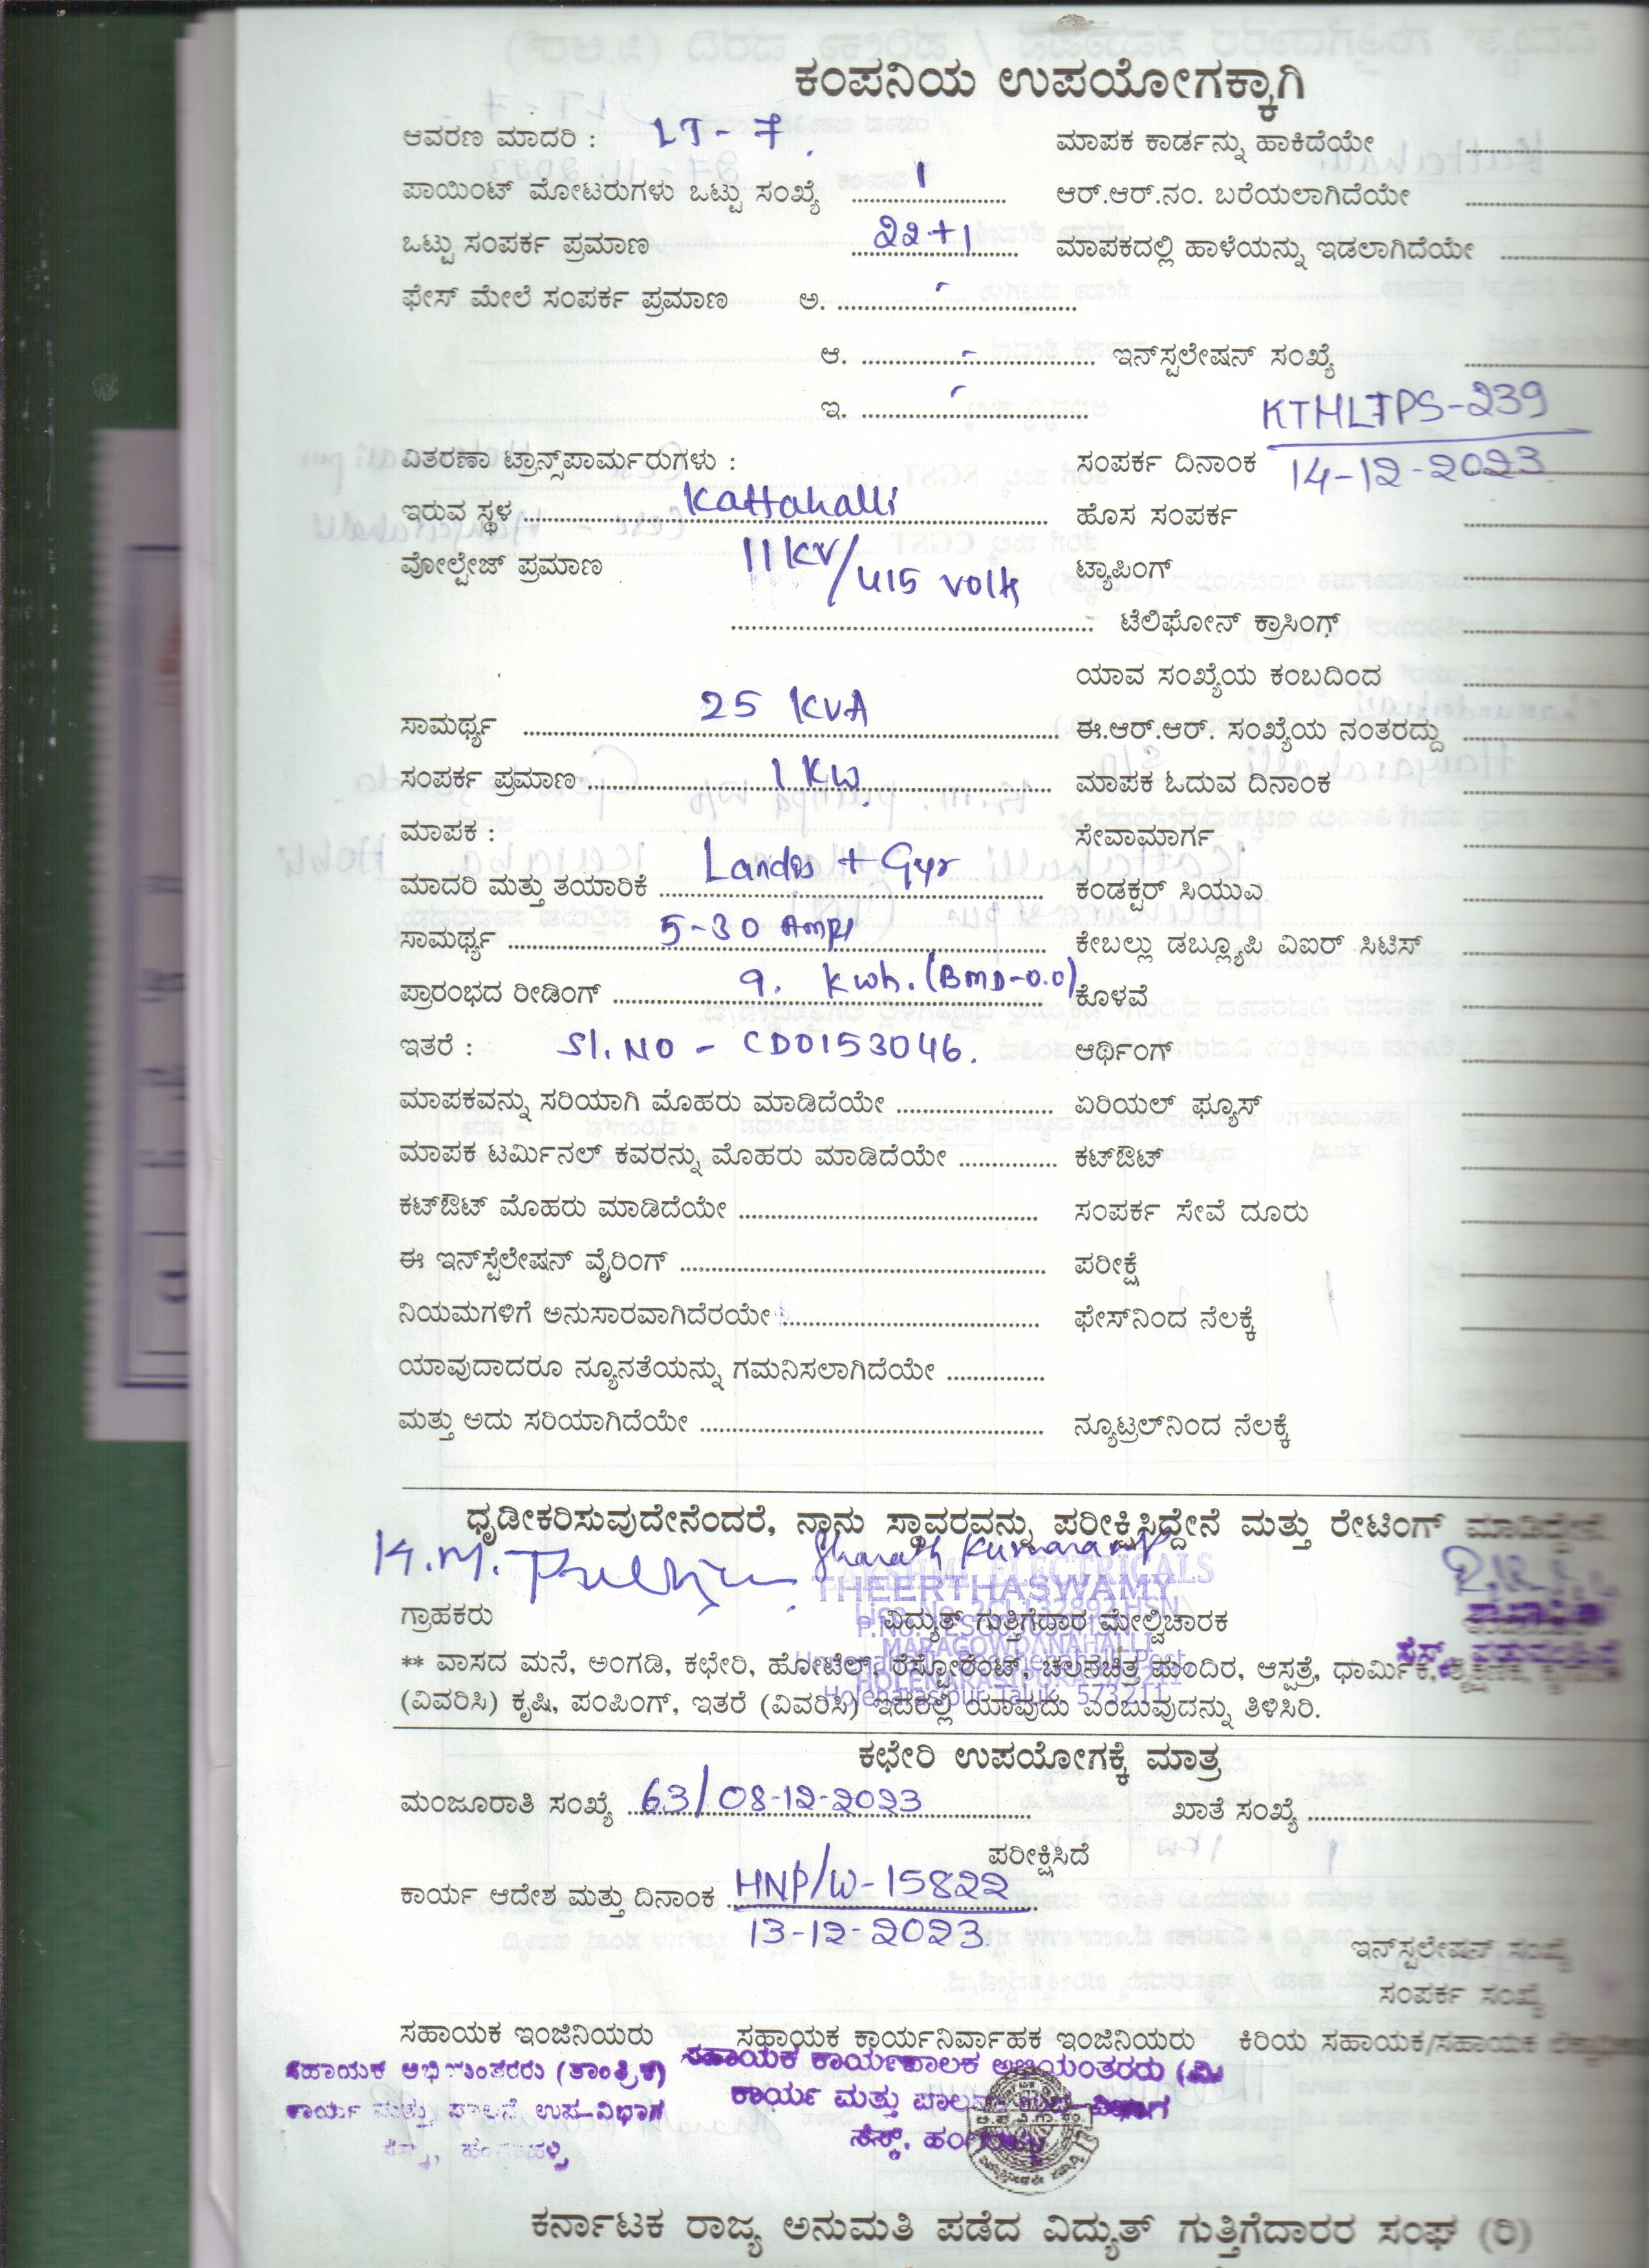 ಕಂಪನಿಯ ಉಪಯೋಗಕ್ಕಾಗಿ
ಆವರಣ ಮಾದರಿ : LT - 7 ಮಾಪಕ ಕಾರ್ಡನ್ನು ಹಾಕಿದೆಯೇ
ಪಾಯಿಂಟ್ ಮೋಟರುಗಳು ಒಟ್ಟು ಸಂಖ್ಯೆ 1 ಆರ್.ಆರ್.ನಂ. ಬರೆಯಲಾಗಿದೆಯೇ
ಒಟ್ಟು ಸಂಪರ್ಕ ಪ್ರಮಾಣ 22+1 ಮಾಪಕದಲ್ಲಿ ಹಾಳೆಯನ್ನು ಇಡಲಾಗಿದೆಯೇ
ಫೇಸ್ ಮೇಲೆ ಸಂಪರ್ಕ ಪ್ರಮಾಣ ಅ. -
ಆ. - ಇನ್‌ಸ್ಟಲೇಷನ್ ಸಂಖ್ಯೆ
ಇ. - KTHLTPS-239
ವಿತರಣಾ ಟ್ರಾನ್ಸ್‌ಪಾರ್ಮರುಗಳು : ಸಂಪರ್ಕ ದಿನಾಂಕ 14-12-2023
ಇರುವ ಸ್ಥಳ Kattahalli ಹೊಸ ಸಂಪರ್ಕ
ವೋಲ್ಟೇಜ್ ಪ್ರಮಾಣ 11KV/415 Volt ಟ್ಯಾಪಿಂಗ್
ಟೆಲಿಫೋನ್ ಕ್ರಾಸಿಂಗ್
ಯಾವ ಸಂಖ್ಯೆಯ ಕಂಬದಿಂದ
ಸಾಮರ್ಥ್ಯ 25 KVA ಈ.ಆರ್.ಆರ್. ಸಂಖ್ಯೆಯ ನಂತರದ್ದು
ಸಂಪರ್ಕ ಪ್ರಮಾಣ 1 KW ಮಾಪಕ ಓದುವ ದಿನಾಂಕ
ಮಾಪಕ : ಸೇವಾಮಾರ್ಗ
ಮಾದರಿ ಮತ್ತು ತಯಾರಿಕೆ Landis + Gyr ಕಂಡಕ್ಟರ್ ಸಿಯುವ
ಸಾಮರ್ಥ್ಯ 5-30 Amps ಕೇಬಲ್ಲು ಡಬ್ಲ್ಯೂಪಿ ವಿಐರ್ ಸಿಟಿಸ್
ಪ್ರಾರಂಭದ ರೀಡಿಂಗ್ 9. Kwh. (BMD-0.0) ಕೊಳವೆ
ಇತರೆ : Sl. NO - CD0153046. ಆರ್ಥಿಂಗ್
ಮಾಪಕವನ್ನು ಸರಿಯಾಗಿ ಮೊಹರು ಮಾಡಿದೆಯೇ ಏರಿಯಲ್ ಫ್ಯೂಸ್
ಮಾಪಕ ಟರ್ಮಿನಲ್ ಕವರನ್ನು ಮೊಹರು ಮಾಡಿದೆಯೇ ಕಟ್‌ಔಟ್
ಕಟ್‌ಔಟ್ ಮೊಹರು ಮಾಡಿದೆಯೇ ಸಂಪರ್ಕ ಸೇವೆ ದೂರು
ಈ ಇನ್‌ಸ್ಟೆಲೇಷನ್ ವೈರಿಂಗ್ ಪರೀಕ್ಷೆ
ನಿಯಮಗಳಿಗೆ ಅನುಸಾರವಾಗಿದೆರಯೇ ಫೇಸ್‌ನಿಂದ ನೆಲಕ್ಕೆ
ಯಾವುದಾದರೂ ನ್ಯೂನತೆಯನ್ನು ಗಮನಿಸಲಾಗಿದೆಯೇ
ಮತ್ತು ಅದು ಸರಿಯಾಗಿದೆಯೇ ನ್ಯೂಟ್ರಲ್‌ನಿಂದ ನೆಲಕ್ಕೆ
ಧೃಡೀಕರಿಸುವುದೇನೆಂದರೆ, ನಾನು ಸ್ಥಾವರವನ್ನು ಪರೀಕ್ಷಿಸಿದ್ದೇನೆ ಮತ್ತು ರೇಟಿಂಗ್ ಮಾಡಿದ್ದೇನೆ
K.M. Sharath Kumara
THEERTHASWAMY
ಗ್ರಾಹಕರು ವಿದ್ಯುತ್ ಗುತ್ತಿಗೆದಾರ ಮೇಲ್ವಿಚಾರಕ
MARAGOWDANAHALLI
** ವಾಸದ ಮನೆ, ಅಂಗಡಿ, ಕಛೇರಿ, ಹೋಟೆಲ್, ರೆಸ್ಟೋರೆಂಟ್, ಚಲನಚಿತ್ರ ಮಂದಿರ, ಆಸ್ಪತ್ರೆ, ಧಾರ್ಮಿಕ,
(ವಿವರಿಸಿ) ಕೃಷಿ, ಪಂಪಿಂಗ್, ಇತರೆ (ವಿವರಿಸಿ) ಇದರಲ್ಲಿ ಯಾವುದು ಎಂಬುವುದನ್ನು ತಿಳಿಸಿರಿ.
ಕಛೇರಿ ಉಪಯೋಗಕ್ಕೆ ಮಾತ್ರ
ಮಂಜೂರಾತಿ ಸಂಖ್ಯೆ 63/08-12-2023 ಖಾತೆ ಸಂಖ್ಯೆ
ಪರೀಕ್ಷಿಸಿದೆ
ಕಾರ್ಯ ಆದೇಶ ಮತ್ತು ದಿನಾಂಕ HNP/W-15822
13-12-2023
ಇನ್‌ಸ್ಟಲೇಷನ್ ಸಂಖ್ಯೆ
ಸಂಪರ್ಕ ಸಂಖ್ಯೆ
ಸಹಾಯಕ ಇಂಜಿನಿಯರು ಸಹಾಯಕ ಕಾರ್ಯನಿರ್ವಾಹಕ ಇಂಜಿನಿಯರು ಕಿರಿಯ ಸಹಾಯಕ/ಸಹಾಯಕ
ಸಹಾಯಕ ಅಭಿಯಂತರರು (ತಾಂತ್ರಿಕ) ಸಹಾಯಕ ಕಾರ್ಯಪಾಲಕ ಅಭಿಯಂತರರು (ವಿ
ಕಾರ್ಯ ಮತ್ತು ಪಾಲನೆ ಉಪ-ವಿಭಾಗ ಕಾರ್ಯ ಮತ್ತು ಪಾಲನೆ ಉಪ-ವಿಭಾಗ
ಸೆಸ್ಕ್,
ಕರ್ನಾಟಕ ರಾಜ್ಯ ಅನುಮತಿ ಪಡೆದ ವಿದ್ಯುತ್ ಗುತ್ತಿಗೆದಾರರ ಸಂಘ (ರಿ)